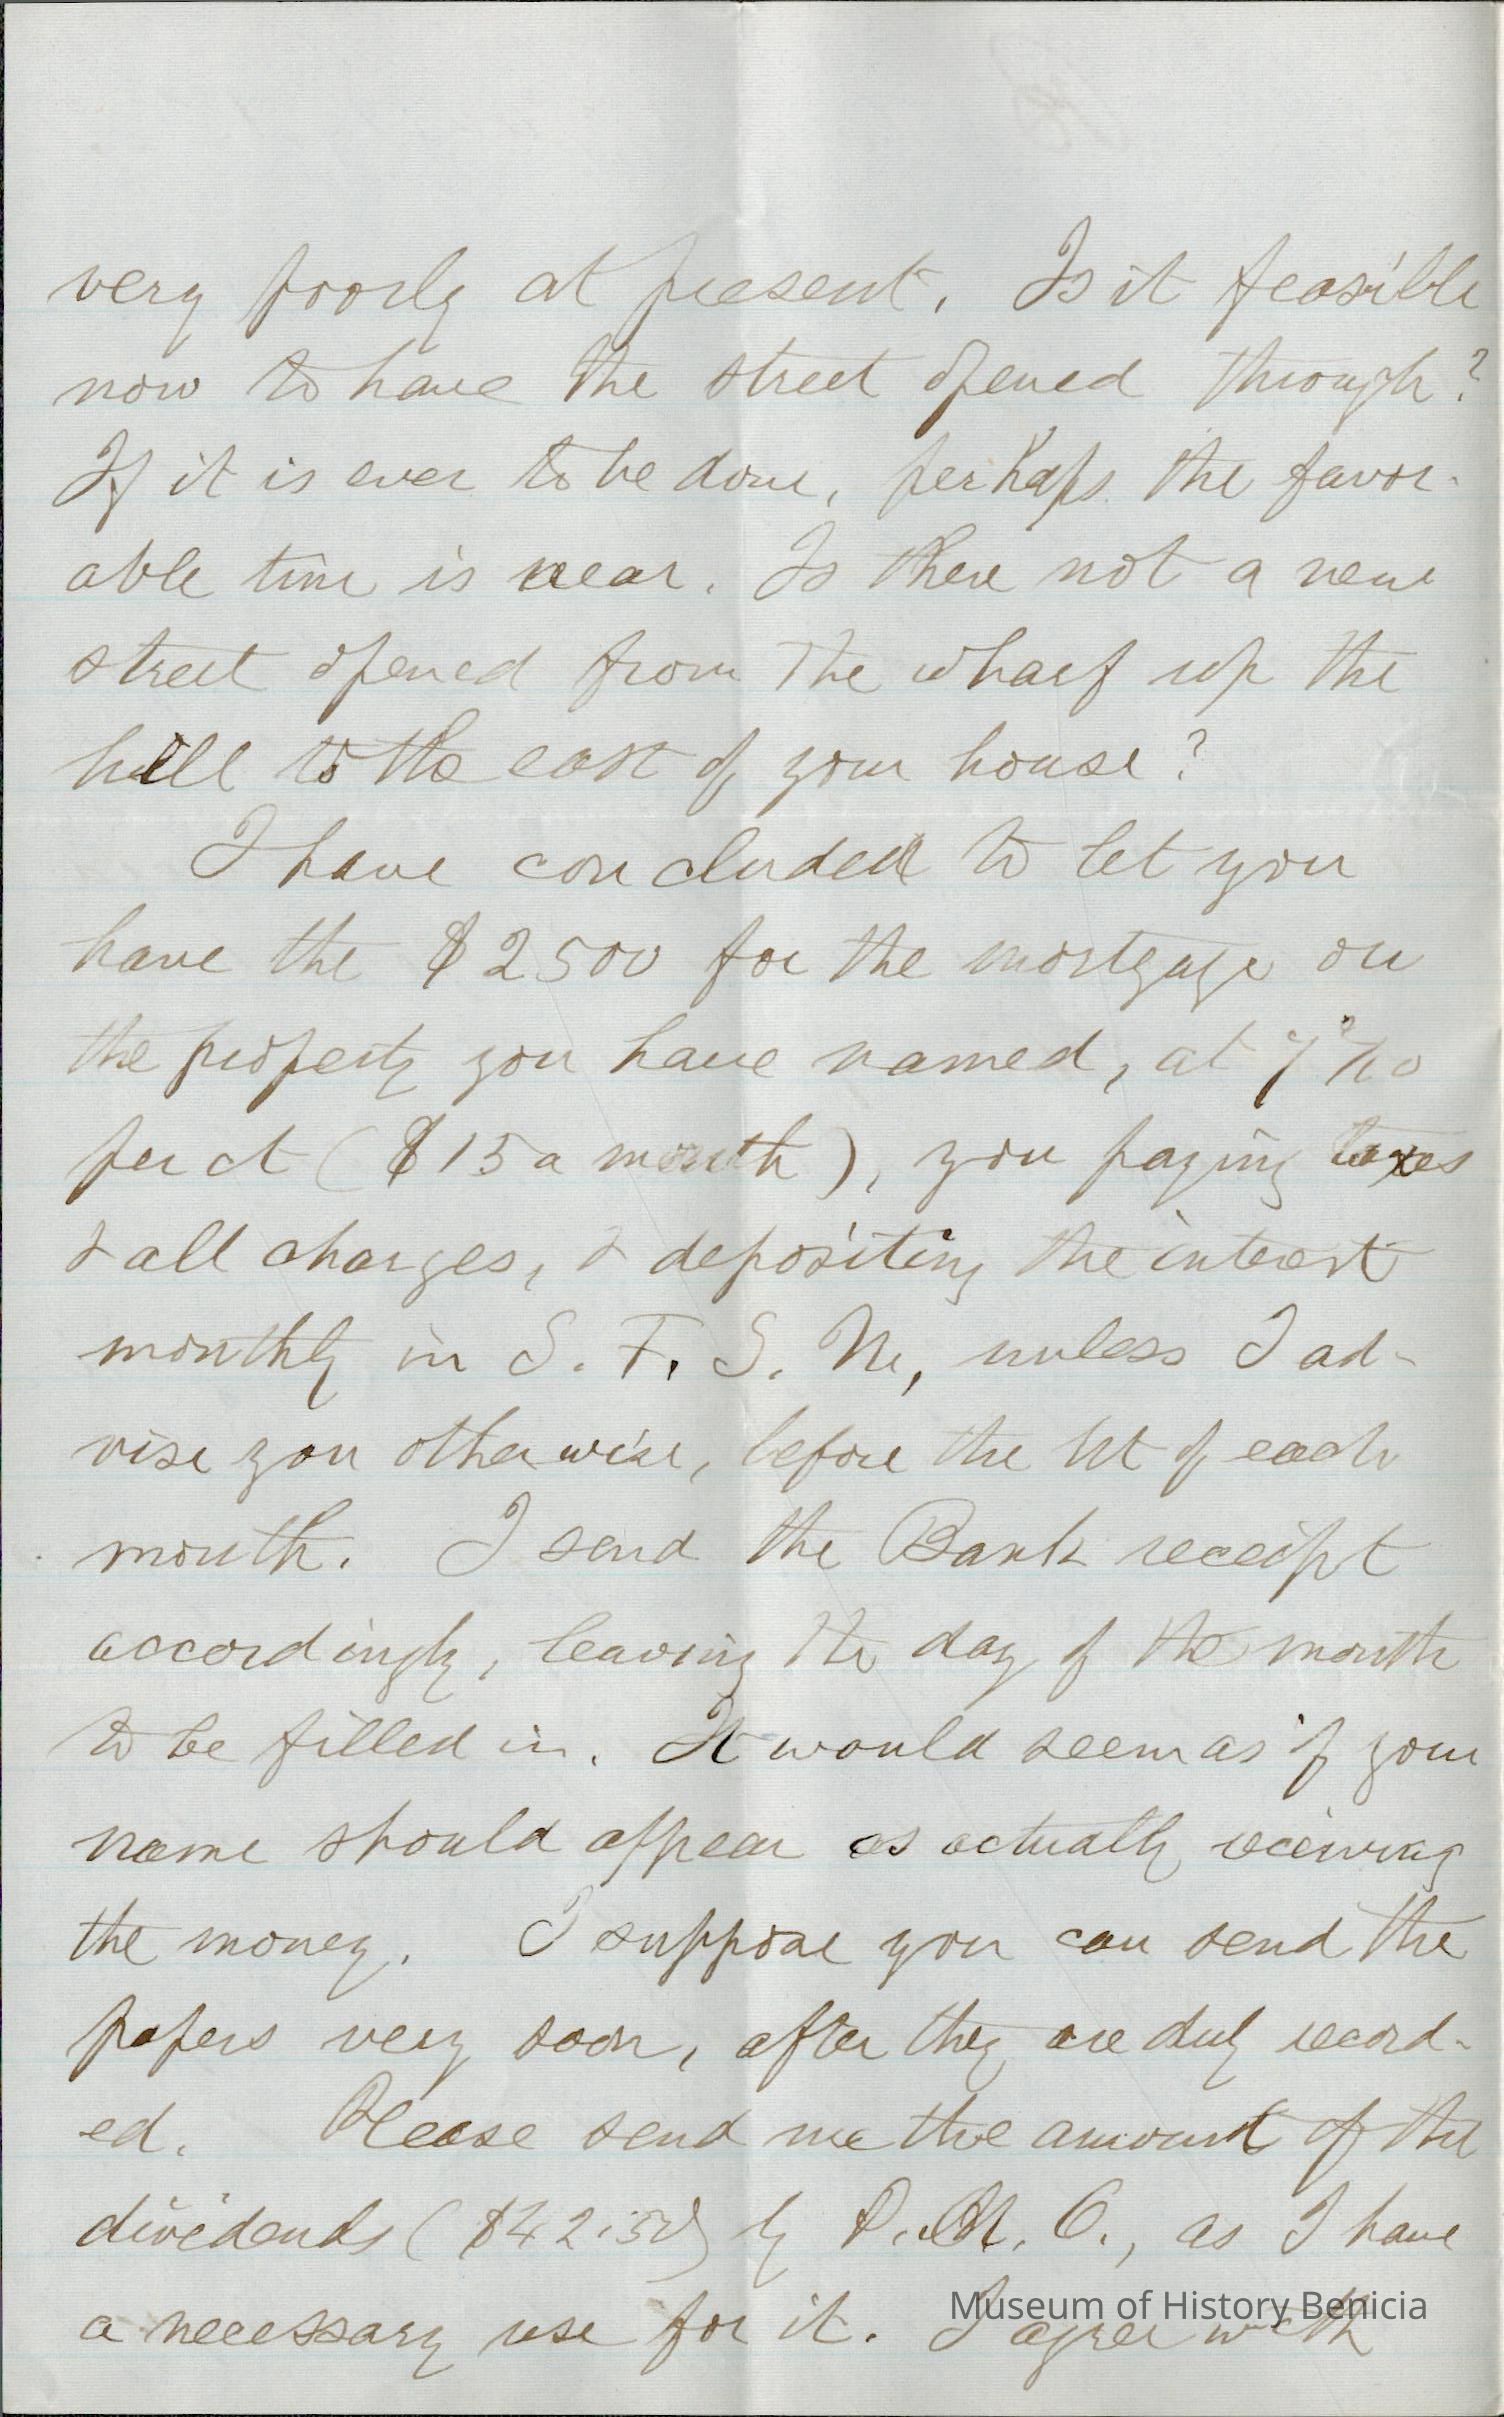 very poorly at present. Is it feasible
now to have the street opened through?
If it is ever to be done, perhaps the favor-
able time is near. Is there not a new
street opened from the wharf up the
hill to the east of your house?
I have concluded to let you
have the $2500 for the mortgage on
the property you have named, at 7 2/10
per ct ($15 a month), you paying taxes
& all charges, & depositing the interest
monthly in S. F. S. U., unless I ad-
vise you otherwise, before the 1st of each
month. I send the Bank receipt
accordingly, leaving the day of the month
to be filled in. It would seem as if your
name should appear as actually receiving
the money. I suppose you can send the
papers very soon, after they are duly record-
ed. Please send me the amount of the
dividends ($42.50) by P. M. O., as I have
a necessary use for it. I agree with
Museum of History Benicia